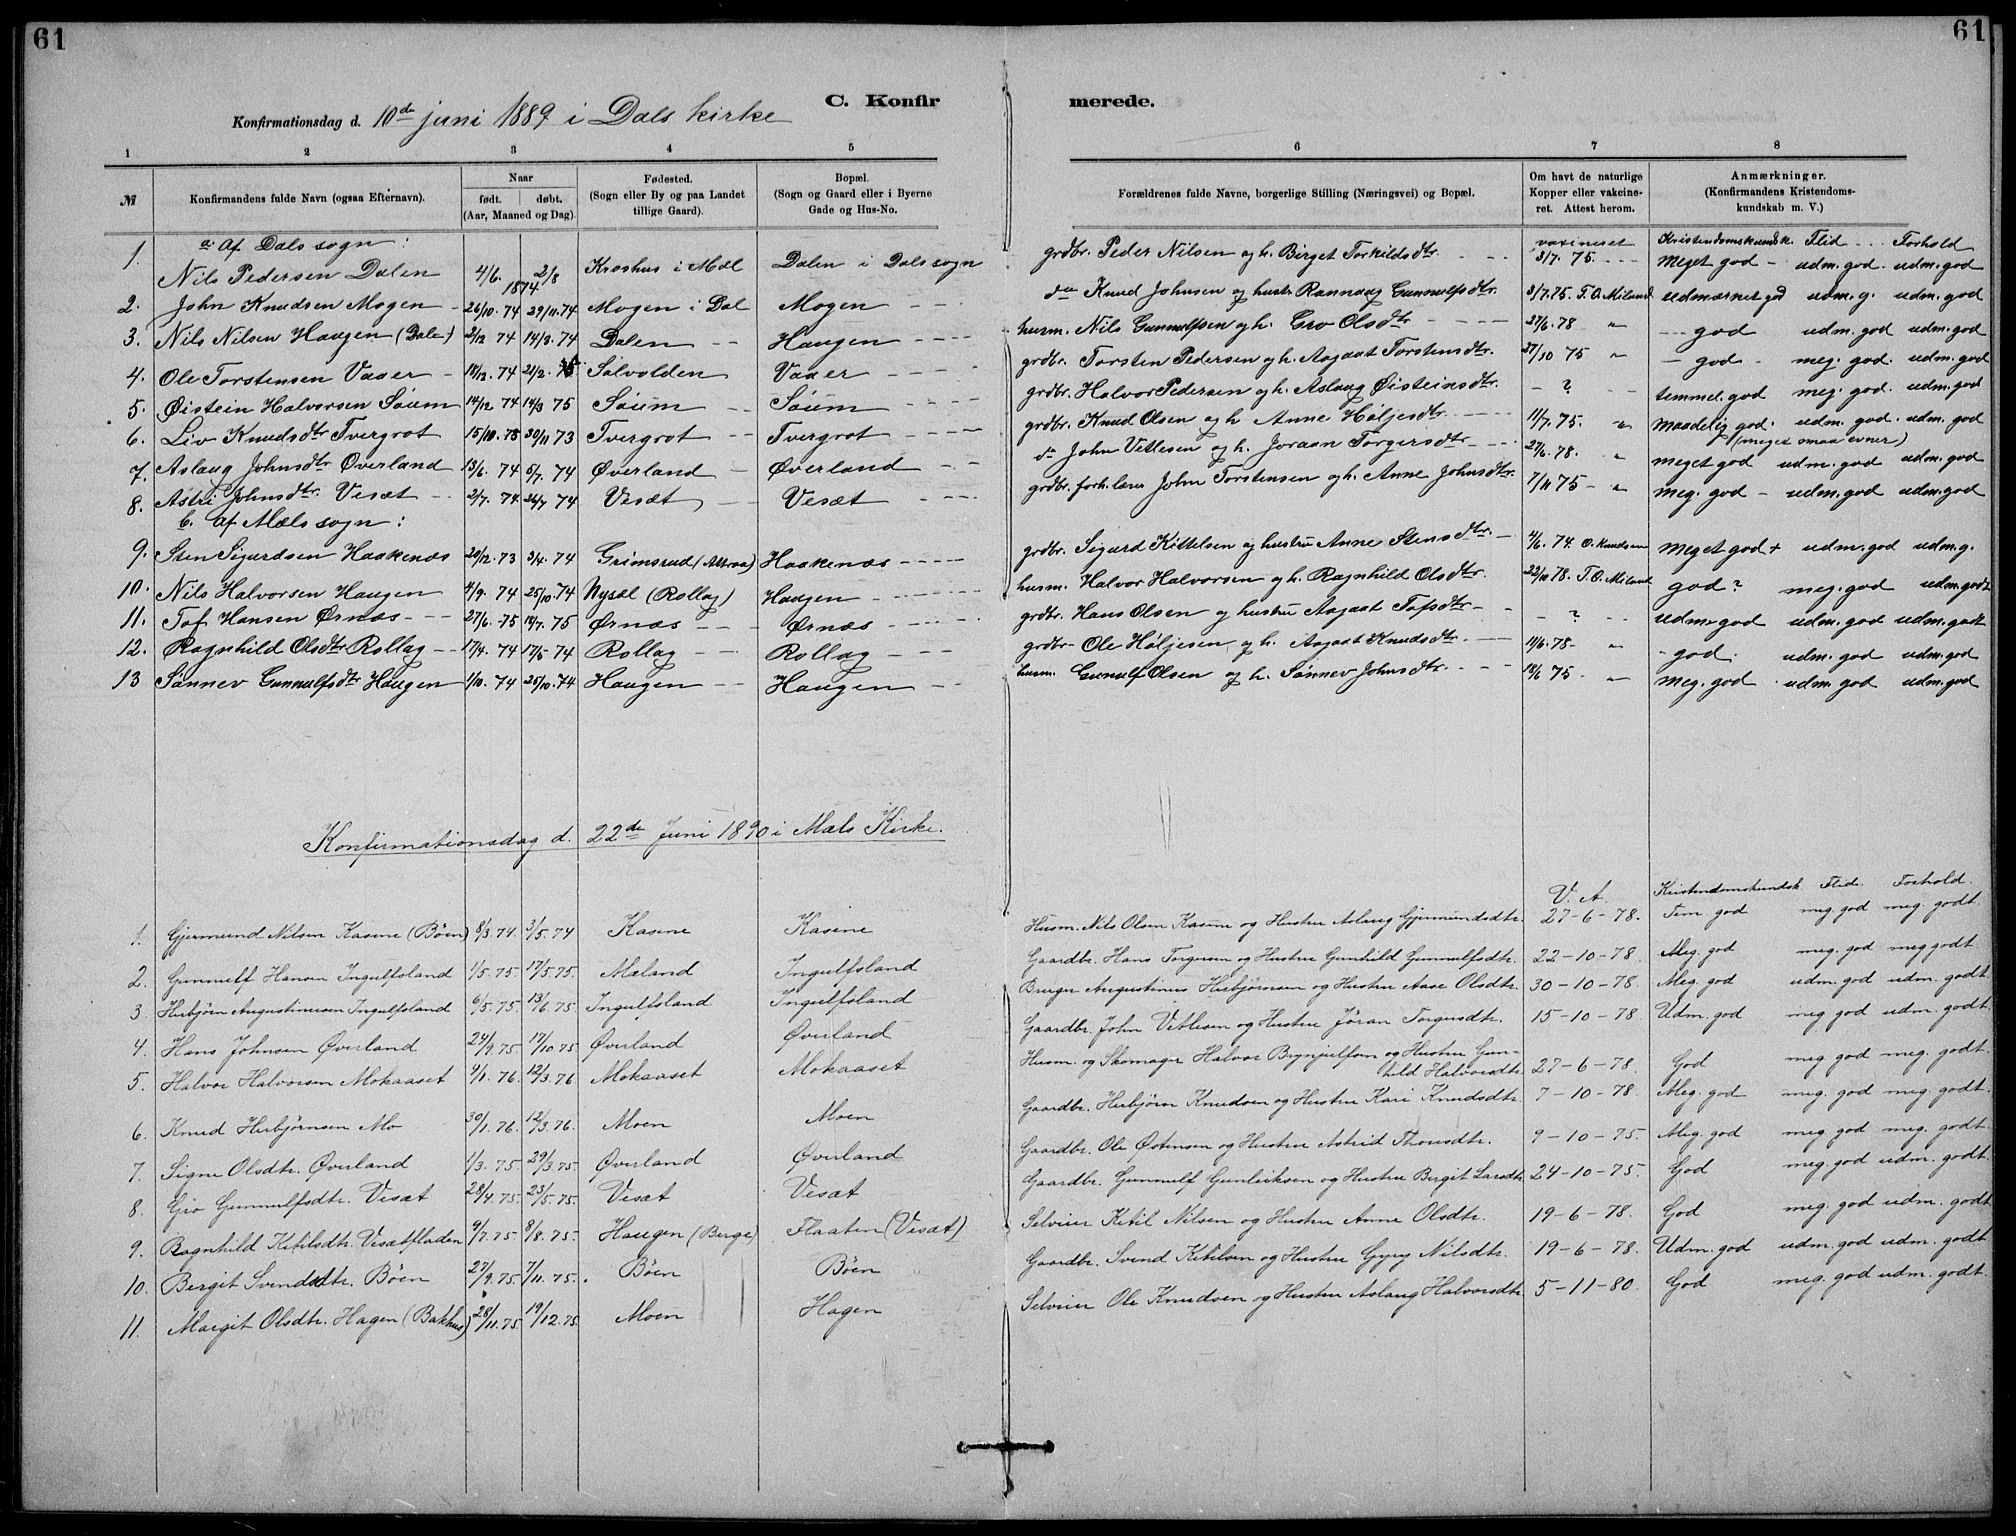 61
61
C. Konfir merede.
Konfirmationsdag d. 10de juni 1889 i Dals kirke
1 2 3 4 5 6 7 8
№ Konfirmandens fulde Navn (ogsaa Efternavn). Naar født. døbt. (Aar, Maaned og Dag). Fødested. (Sogn eller By og paa Landet tillige Gaard). Bopæl. (Sogn og Gaard eller i Byerne Gade og Hus-No. Forældrenes fulde Navne, borgerlige Stilling (Næringsvei) og Bopæl. Om havt de naturlige Kopper eller vakcineret. Attest herom. Anmærkninger. (Konfirmandens Kristendomskundskab m. V.)
a. af Dals sogn: vaxineret Kristendomskundsk. Flid Forhold
1. Nils Pedersen Dalen 4/6. 1874 2/8 Kroshus i Mæl Dalen i Dals sogn grdbr. Peder Nilsen og h. Birget Torkildsdtr. 3/7. 75. meget god - udm. god. udm. god
2. John Knudsen Mogen 26/10. 74 29/11. 74 Mogen i Dal Mogen do Knud Johnsen og hustr. Rannaug Gunnulfsdtr. 3/7. 75. T. O. Miland udmærket god udm. g. udm. god
3. Nils Nilsen Haugen (Dale) 2/12 74 14/3. 74 Dalen Haugen husm. Nils Gunnulfsen og h. Gro Olsdtr 27/6. 78 " god udm. god udm. god
4. Ole Torstensen Vaaer 18/12. 74 21/2. 75 Sølvolden Vaaer grdbr. Torsten Pedersen og h. Aagaat Torstensdtr. 27/10 75 " god - meg. god. udm. god
5. Øistein Halvorsen Søum 14/12 74 14/3 75 Søum Søum grdbr. Halvor Pedersen og h. Aslaug Øisteinsdtr. - ? temmel. god meg. god. udm. god
6. Liv Knudsdtr Tvergrot 15/10. 73 30/11 73 Tvergrot Tvergrot grdbr. Knud Olsen og h Anne Høljesdtr 11/7. 75. " maadelig god. udm. god. udm. god
(meget smaa evner)
7. Aslaug Johnsdtr Øverland 13/6. 74 5/7. 74 Øverland Øverland do John Vetlesen og h. Joraan Torgersdtr 27/6. 78. " meget god udm. god udm. god
8. Astri Johnsdtr. Vesæt 2/7. 74 26/7 74 Vesæt Vesæt grdbr. forh. lærer John Torstensen og h. Anne Johnsdtr. 7/11 75 - " meg. god - udm. god udm. god
b. af Mæls sogn:
9. Sten Sigurdsen Haakenæs 20/12. 73 3/4. 74 Grimsrud (Attraa) Haakenæs grdbr. Sigurd Kittelsen og hustru Anne Stensdtr. 4/6. 74. O. Knudsen meget god + udm. god udm. g.
10. Nils Halvorsen Haugen 4/9. 74 25/10. 74 Nysæl (Rollag) Haugen husm. Halvor Halvorsen og h. Ragnhild Olsdtr. 22/10 78. T. O. Miland god? meg. god udm. godt
11. Tof Hansen Ørnæs 27/6. 75 18/7. 75 Ørnæs Ørnæs grdbr. Hans Olsen og hustru Aagaat Tofsdtr - ? udm. god udm. god udm. godt
12. Ragnhild Olsdtr Rollag 17/4. 74 17/5 74 Rollag Rollag grdbr. Ole Høljesen og h. Aagaat Knudsdtr. 18/6. 78 " god. udm. god udm. god
13 Sønnev Gunnulfsdtr Haugen 1/10. 74 25/10. 74 Haugen Haugen husm. Gunnulf Olsen og h. Sønnev Johnsdtr. 18/6 75. " meg. god udm. god udm. god
Konfirmationsdag d. 22de Juni 1890 i Mæls Kirke.
V. A. Kristendomskundsk. Flid. Forhold.
1. Gjermund Nilsen Kasine (Böen) 8/3. 74. 3/5. 74 Kasine Kasine Husm. Nils Olsen Kasine og Hustru Aslaug Gjermundsdtr. 27-6-78. Tem. god meg. god meg. godt
2. Gunnulf Hansen Ingulfsland 1/5. 75. 17/5. 75. Mæland Ingulfsland Gaardbr. Hans Torgersen og Hustru Gunhild Gunnulfsdtr. 22-10-78. Meg. god meg. god meg godt
3. Herbjörn Augustinusen Ingulfsland 6/5. 75. 13/6. 75 Ingulfsland Ingulfsland Bruger Augustinus Herbjörnsen og Hustru Aase Olsdtr. 30-10-78. Meg. god udm. god udm. godt.
4. Hans Johnsen Øverland 24/9. 75. 17/10. 75. Øverland Øverland Gaardbr. John Vetlesen og Hustru Jöran Torgersdtr. 15-10-78 Udm. god meg god udm. godt.
5. Halvor Halvorsen Mokaaset 9/1. 76. 12/3. 76 Mokaaset Mokaaset Husm. og Skomager Halvor Brynjulfsen og Hustru Gunhild Halvorsdtr. 27-6-78. God meg god meg. godt.
6. Knud Herbjörnsen Mo 30/1. 76. 12/3. 76. Moen Moen Gaardbr. Herbjörn Knudsen og Hustru Kari Knudsdtr. 7-10-78. Meg. god meg. god meg. godt.
7. Signe Olsdtr. Øverland 1/3. 75 29/3. 75. Øverland Øverland Gaardbr. Ole Østensen og Hustru Astrid Thorsdtr. 9-10-75. Meg. god meg god meg. godt.
8. Gro Gunnulfsdtr. Vesæt 28/4. 75. 23/5. 75. Vesæt Vesæt Gaardbr. Gunnulf Gunleiksen og Hustru Bergit Larsdtr. 24-10-75. God meg. god udm. godt.
9. Ragnhild Ketilsdtr. Vesætfladen 9/7. 75. 8/8. 75. Haugen (Berge) Flaaten (Vesæt) Selveier Ketil Nilsen og Hustru Anne Olsdtr. 19-6-78. God meg. god udm. godt.
10. Bergit Svendsdtr. Böen 27/9. 75. 7/11. 75. Böen Böen Gaardbr. Svend Ketilsen og Hustru Gyrij Nilsdtr. 19-6-78. Udm. god udm. god udm. godt.
11. Margit Olsdtr. Hagen (Bakhus) 28/11. 75. 19/12. 75. Moen Hagen Selveier Ole Knudsen og Hustru Aslaug Halvorsdtr. 5-11-80. God meg. god udm. godt.